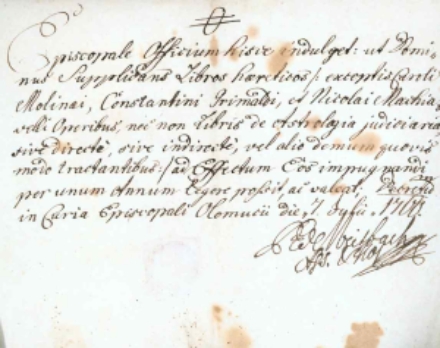 Episcopale Officium hisce indulget: ut Domi-
nus Supplicans Libros hæreticos /: exceptis Caroli
Molinæi, Constantini Grimaldi, et Nicolai Machia-
velli Operibus, nec non Libris de Astrologia judiciaria
sive directè, sive indirectè, vel alio demum quovis
modo tractantibus :/ ad Effectum Eos impugnandi
per unum Annum Legere possit, ac valeat. Decretum
in Curia Episcopali Olomucii die 7. Julii